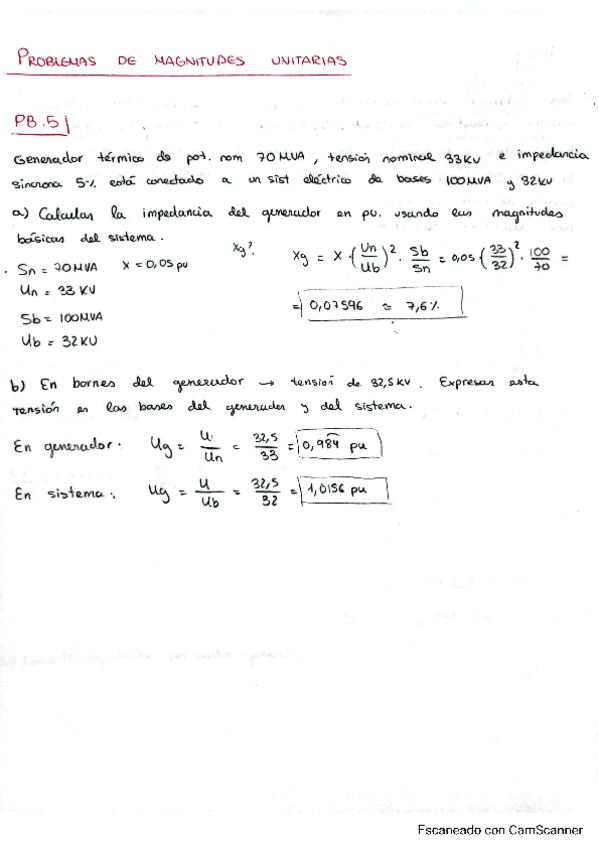 PROBLEMAS DE MAGNITUDES UNITARIAS
PB.5
Generador térmico de pot. nom 70MVA, tensión nominal 33KV e impedancia
síncrona 5% está conectado a un sist eléctrico de bases 100MVA y 32KV
a) Calcular la impedancia del generador en pu. usando las magnitudes
básicas del sistema.
Sn = 70MVA X = 0,05 pu Xg? Xg = X · (Un/Ub)² · Sb/Sn = 0,05 (33/32)² · 100/70 =
Un = 33 KV
= 0,07596 ≃ 7,6%
Sb = 100MVA
Ub = 32KV
b) En bornes del generador → tensión de 32,5KV. Expresar esta
tensión en las bases del generador y del sistema.
En generador: Ug = U/Un = 32,5/33 = 0,984 pu
En sistema: Ug = U/Ub = 32,5/32 = 1,0156 pu
Escaneado con CamScanner